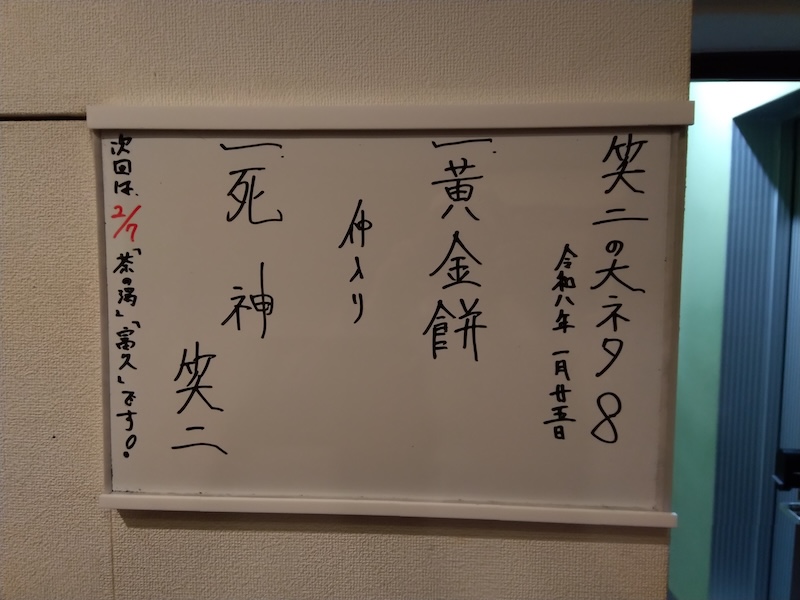 笑二の大ネタ8
令和八年 一月廿五日
一黄金餅
仲入り
一死神
笑二
次回は、2/7「茶の湯」「富久」です!